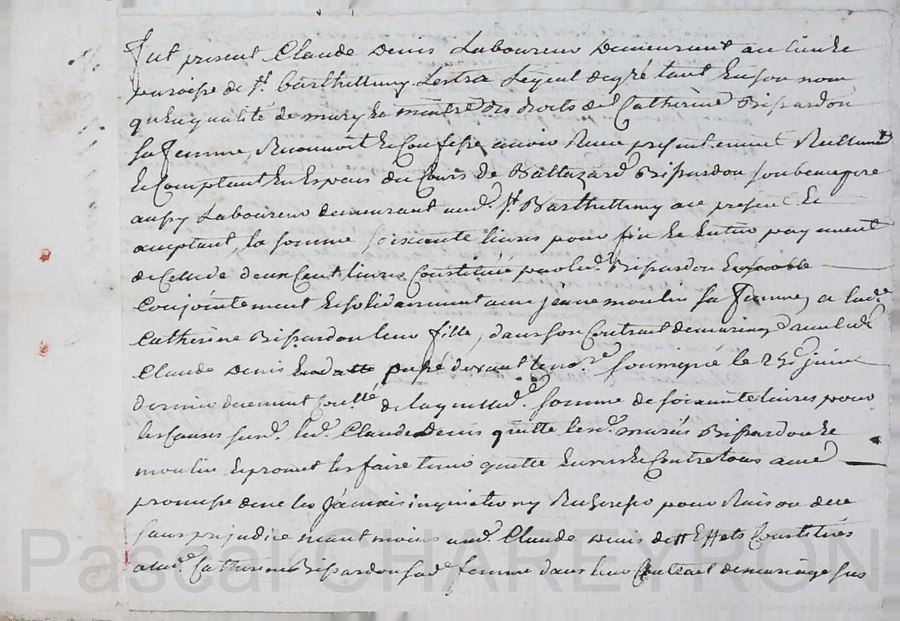 Fut present Claude Denis Laboureur Demeurant au lieu de
paroisse de St. Barthellemy Lestra Lequel degré tant En son nom
qu'En qualité de mary Et maitre des droits de Catherine Bissardon
sa femme, Reconnoit Et Confesse avoir Receu presentement Reellement
Et Comptant En Espece du Cours de Baltazard Bissardon son beaupere
aussy Laboureur demeurant aud. St. Barthellemy ace present Et
acceptant, la somme soixante livres pour fin Et Entier payement
de Celle de deux Cent livres Constituée par led. Bissardon
Conjointement Et solidairement avec jeanne moulin sa femme, a lad.e
Catherine Bissardon leur fille, dans son Contrat de mariage avec led.
Claude Denis passé devant le no.re soussigné le 29e juin
dernier deuement Coullé, de laquelle d. somme de soixante livres pour
les Causes susd. led. Claude Denis quitte les d. mariés Bissardon Et
moulin Et promet les faire tenir quitte Envers Et Contre tous avec
promesse de ne les jamais inquieter ny Rechercher pour Raison de ce
sans prejudice neantmoins aud. Claude Denis des Effets Constitués
a lad. Catherine Bissardon sad. femme dans leur Contrait de mariage sus
Pascal CHAREYRON